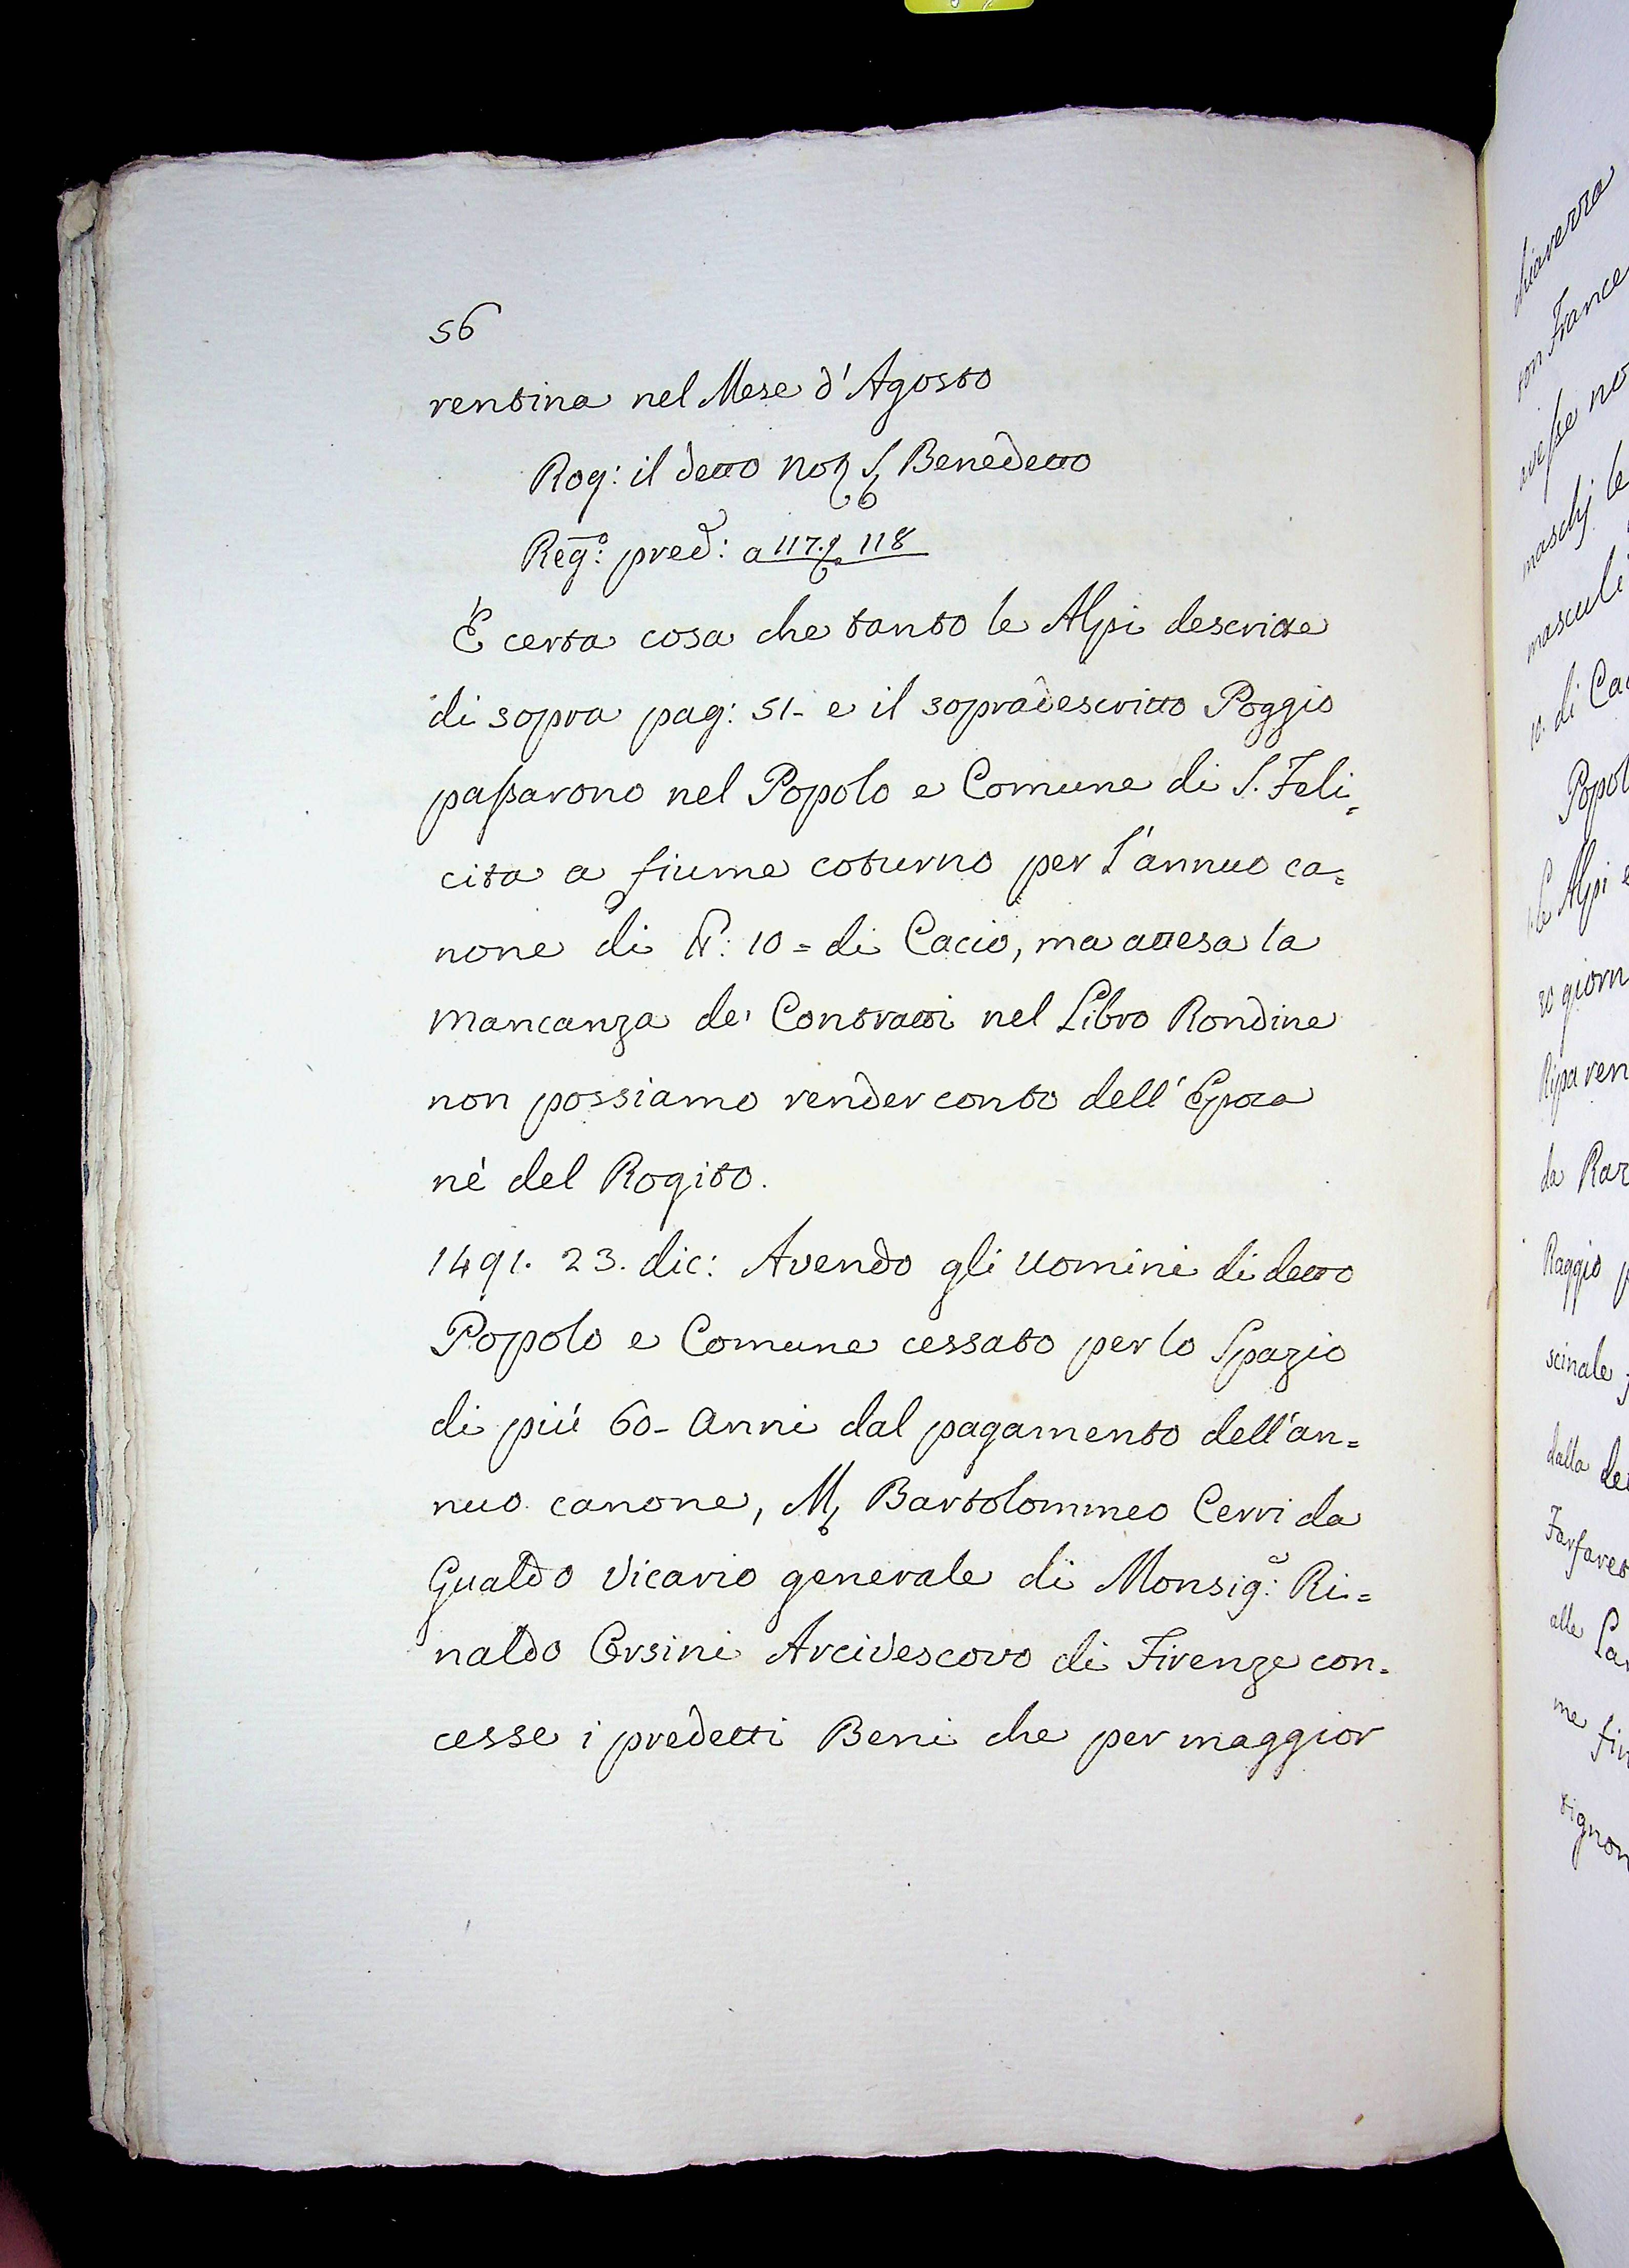 56
rentina nel Mese d'Agosto
Rog: il detto Not S Benedetto
Reg:º pred: a 117. e 118
È certa cosa che tanto le Alpi descritte
di sopra pag: 51- e il sopradescritto Poggio
passarono nel Popolo e Comune di S. Feli=
cita a fiume coturno per l'annuo ca=
none di 10= di Cacio, ma attesa la
mancanza de' Contratti nel Libro Rondine
non possiamo render conto dell'Epoca
nè del Rogito.
1491. 23. dic: Avendo gli Uomini di detto
Popolo e Comune cessato per lo Spazio
di più 60- Anni dal pagamento dell'an=
nuo canone, M Bartolommeo Cerri da
Gualdo Vicario generale di Monsig:e Ri=
naldo Orsini Arcivescovo di Firenze con=
cesse i predetti Beni che per maggior
chiaverra
son France
avesse no
maschj le
masculi
10. di Cac
Popol
le Alpi e
20 giorn
Ripa ren
da Rar
Raggio p
scinale
dalla de
Farfaret
alle La
me fiu
tignon